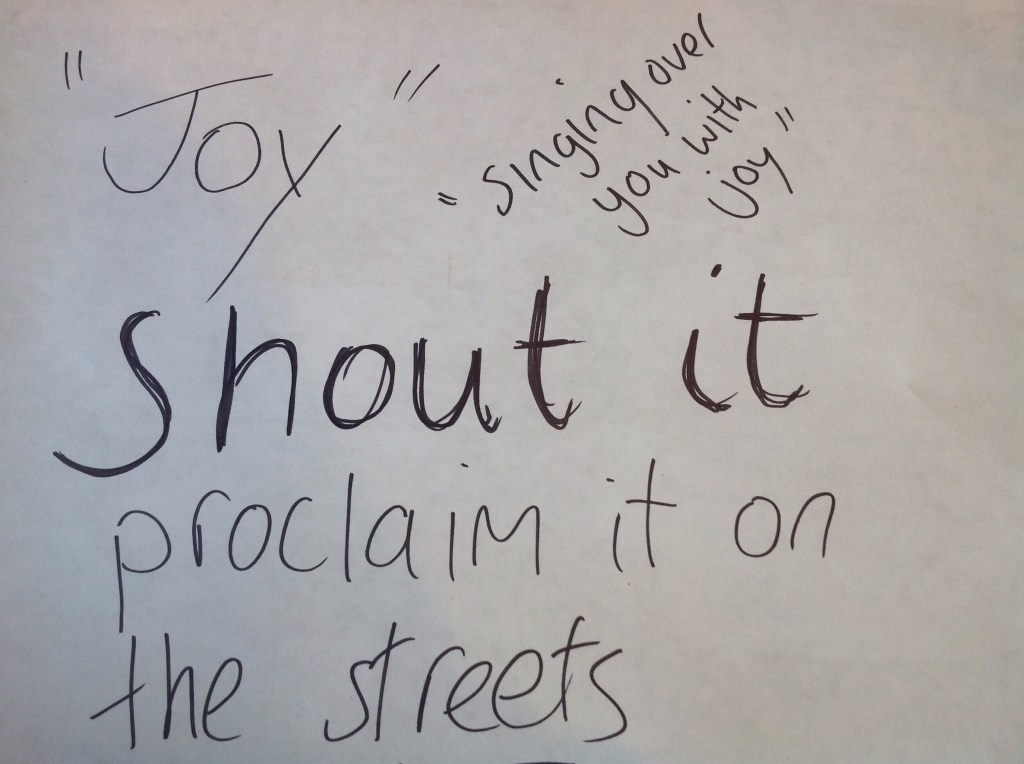 "Joy"
"singing over
you with
joy"
shout it
proclaim it on
the streets